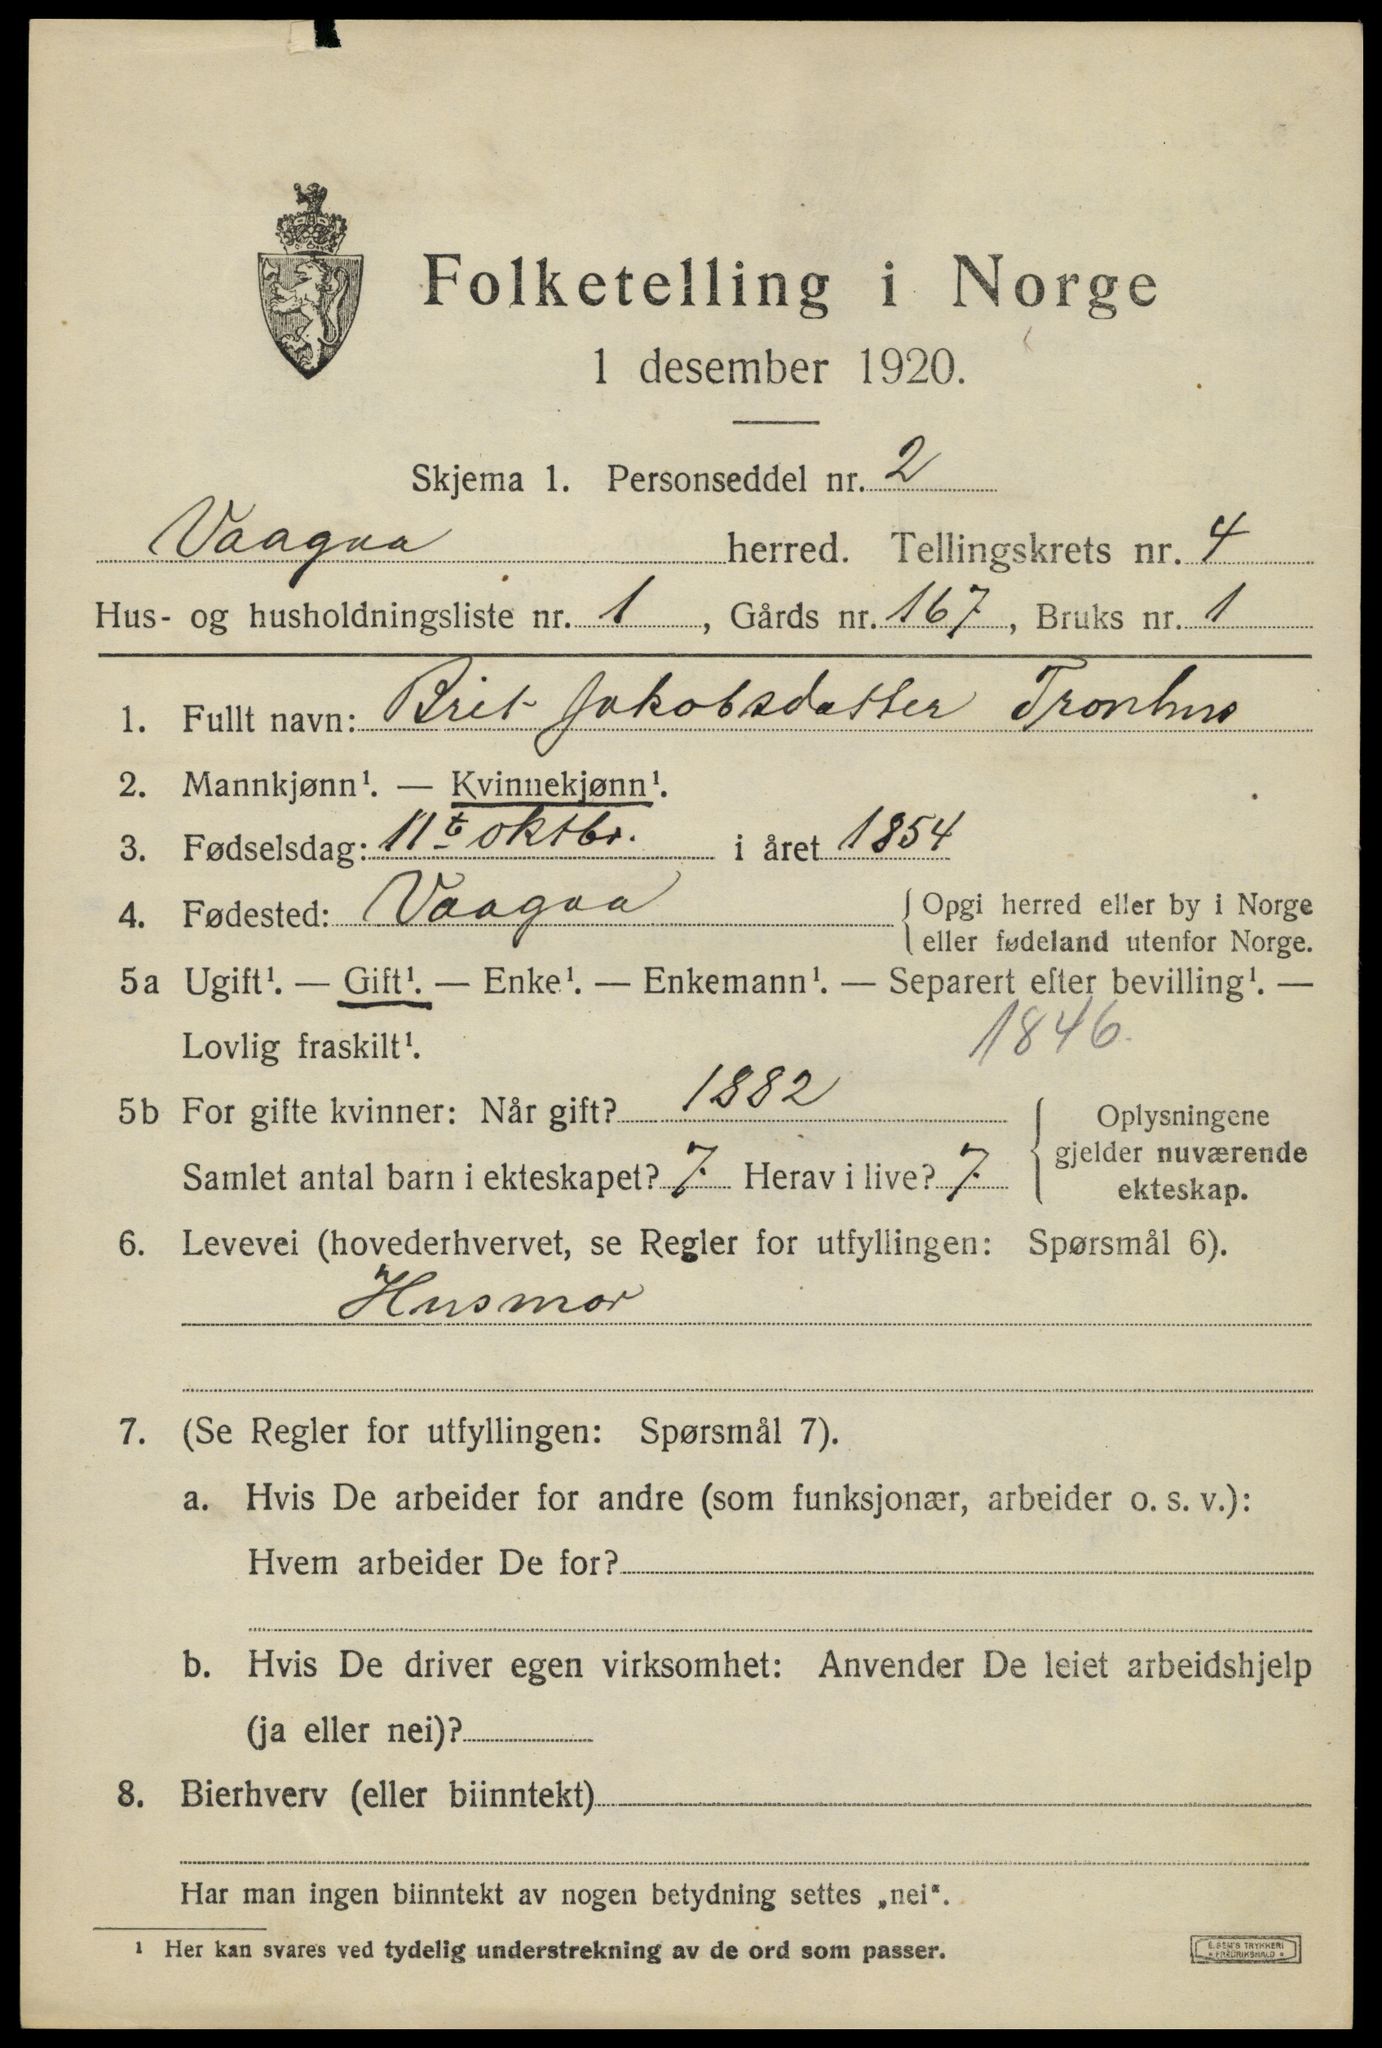 Folketelling i Norge
1 desember 1920.
Skjema 1. Personseddel nr. 2
Vaagaa herred. Tellingskrets nr. 4
Hus- og husholdningsliste nr. 1, Gårds nr. 167, Bruks nr. 1
1. Fullt navn: Brit Jakobsdatter Tronhus
2. Mannkjønn¹. — Kvinnekjønn¹.
3. Fødselsdag: 11te oktbr. i året 1854
4. Fødested: Vaagaa { Opgi herred eller by i Norge
eller fødeland utenfor Norge.
5a Ugift¹. — Gift¹. — Enke¹. — Enkemann¹. — Separert efter bevilling¹. —
Lovlig fraskilt¹. 1846.
5b For gifte kvinner: Når gift? 1882 { Oplysningene
gjelder nuværende
Samlet antal barn i ekteskapet? 7. Herav i live? 7.
ekteskap.
6. Levevei (hovederhvervet, se Regler for utfyllingen: Spørsmål 6).
Husmor
7. (Se Regler for utfyllingen: Spørsmål 7).
a. Hvis De arbeider for andre (som funksjonær, arbeider o. s. v.):
Hvem arbeider De for?
b. Hvis De driver egen virksomhet: Anvender De leiet arbeidshjelp
(ja eller nei)?
8. Bierhverv (eller biinntekt)
Har man ingen biinntekt av nogen betydning settes „nei“.
¹ Her kan svares ved tydelig understrekning av de ord som passer.
E. SEM'S TRYKKERI
FREDRIKSHALD